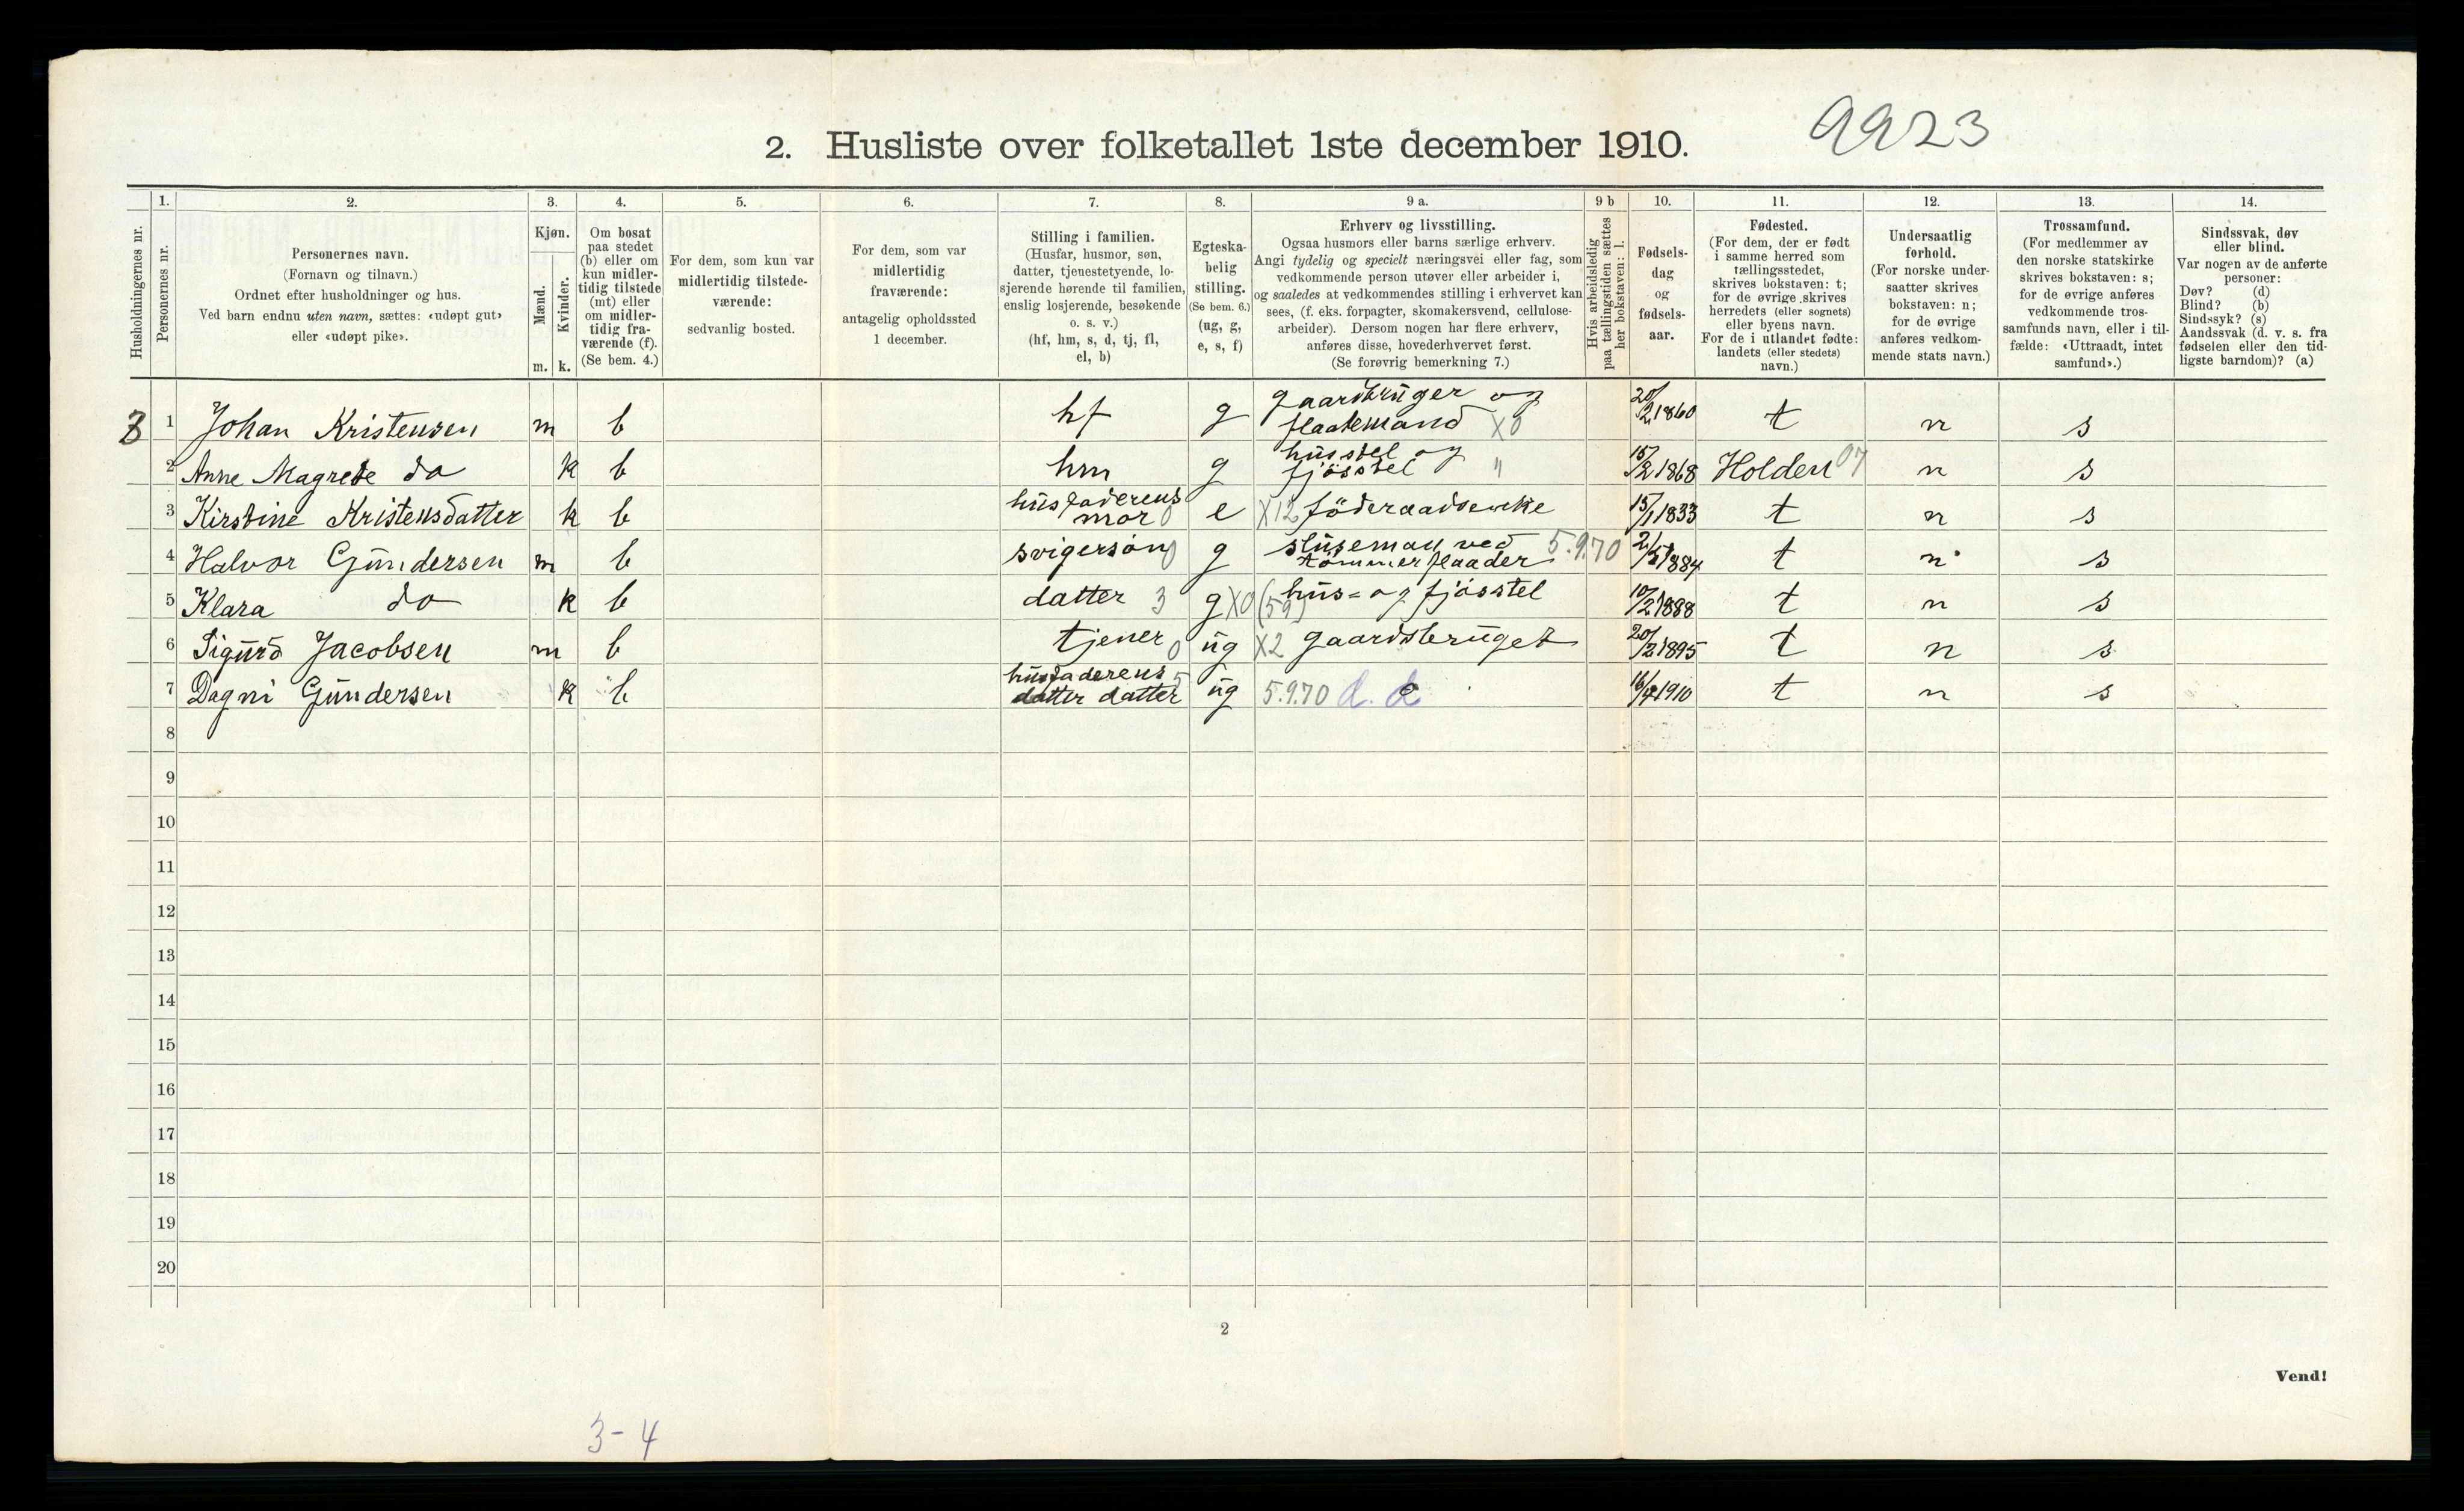 9923
2. Husliste over folketallet 1ste december 1910.
Husholdningernes nr.
1.
Personernes nr.
2.
Personernes navn.
(Fornavn og tilnavn.)
Ordnet efter husholdninger og hus.
Ved barn endnu uten navn, sættes: «udøpt gut»
eller «udøpt pike».
3.
Kjøn.
Mænd.
Kvinder.
m. k.
4.
Om bosat
paa stedet
(b) eller om
kun midler-
tidig tilstede
(mt) eller
om midler-
tidig fra-
værende (f).
(Se bem. 4.)
5.
For dem, som kun var
midlertidig tilstede-
værende:
sedvanlig bosted.
6.
For dem, som var
midlertidig
fraværende:
antagelig opholdssted
1 december.
7.
Stilling i familien.
(Husfar, husmor, søn,
datter, tjenestetyende, lo-
sjerende hørende til familien,
enslig losjerende, besøkende
o. s. v.)
(hf, hm, s, d, tj, fl,
el, b)
8.
Egteska-
belig
stilling.
(Se bem. 6.)
(ug, g,
e, s, f)
9 a.
Erhverv og livsstilling.
Ogsaa husmors eller barns særlige erhverv.
Angi tydelig og specielt næringsvei eller fag, som
vedkommende person utøver eller arbeider i,
og saaledes at vedkommendes stilling i erhvervet kan
sees, (f. eks. forpagter, skomakersvend, cellulose-
arbeider). Dersom nogen har flere erhverv,
anføres disse, hovederhvervet først.
(Se forøvrig bemerkning 7.)
9 b
Hvis arbeidsledig
paa tællingstiden sættes
her bokstaven: l.
10.
Fødsels-
dag
og
fødsels-
aar.
11.
Fødested.
(For dem, der er født
i samme herred som
tællingsstedet,
skrives bokstaven: t;
for de øvrige skrives
herredets (eller sognets)
eller byens navn.
For de i utlandet fødte:
landets (eller stedets)
navn.)
12.
Undersaatlig
forhold.
(For norske under-
saatter skrives
bokstaven: n;
for de øvrige
anføres vedkom-
mende stats navn.)
13.
Trossamfund.
(For medlemmer av
den norske statskirke
skrives bokstaven: s;
for de øvrige anføres
vedkommende tros-
samfunds navn, eller i til-
fælde: «Uttraadt, intet
samfund».)
14.
Sindssvak, døv
eller blind.
Var nogen av de anførte
personer:
Døv? (d)
Blind? (b)
Sindssyk? (s)
Aandssvak (d. v. s. fra
fødselen eller den tid-
ligste barndom)? (a)
3 1 Johan Kristensen m b hf g gaardbruger og flaatemand X0 20/2 1860 t n s
2 Anne Magrete do k b hm g husstel og fjøsstel " 15/2 1868 Holden 07 n s
3 Kirstine Kristensdatter k b husfaderens mor 0 e X12 föderaadsenke 15/1 1833 t n s
4 Halvor Gundersen m b svigersøn 0 g sluseman ved tömmerflaader 5.9.70 2/5 1884 t n s
5 Klara do k b datter 3 g X0 (59) hus= og fjøsstel 10/2 1888 t n s
6 Sigurd Jacobsen m b tjener 0 ug X2 gaardsbruget 20/2 1895 t n s
7 Dagni Gundersen k b husfaderens datter datter 5 ug 5.9.70 d. d 16/4 1910 t n s
8
9
10
11
12
13
14
15
16
17
18
19
20
2
Vend!
3-4